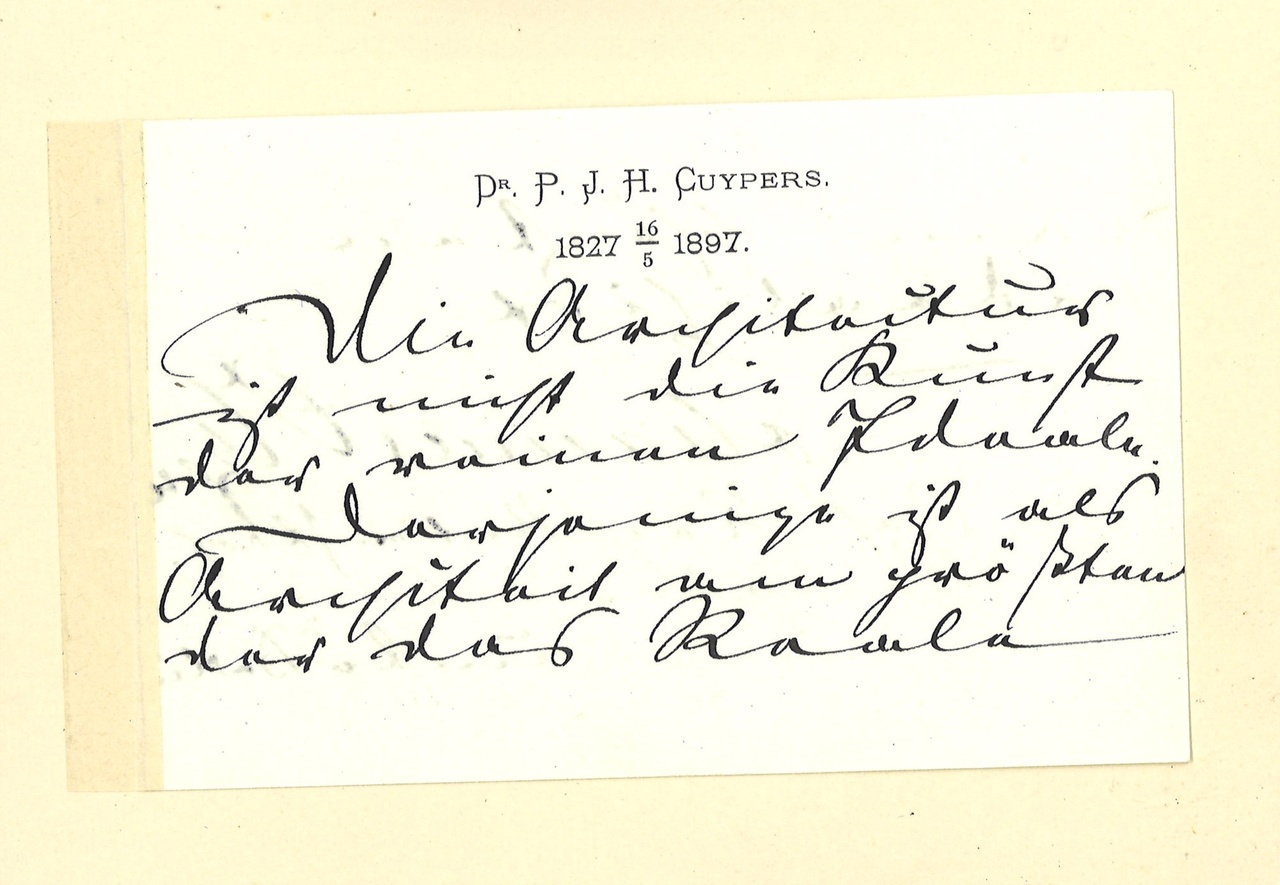 DR. P. J. H. CUYPERS.
1827 16/5 1897.
Die Architectur
ist nicht die Kunst
der reinen Ideale.
Derjenige ist als
Architect am größten
der das Reale